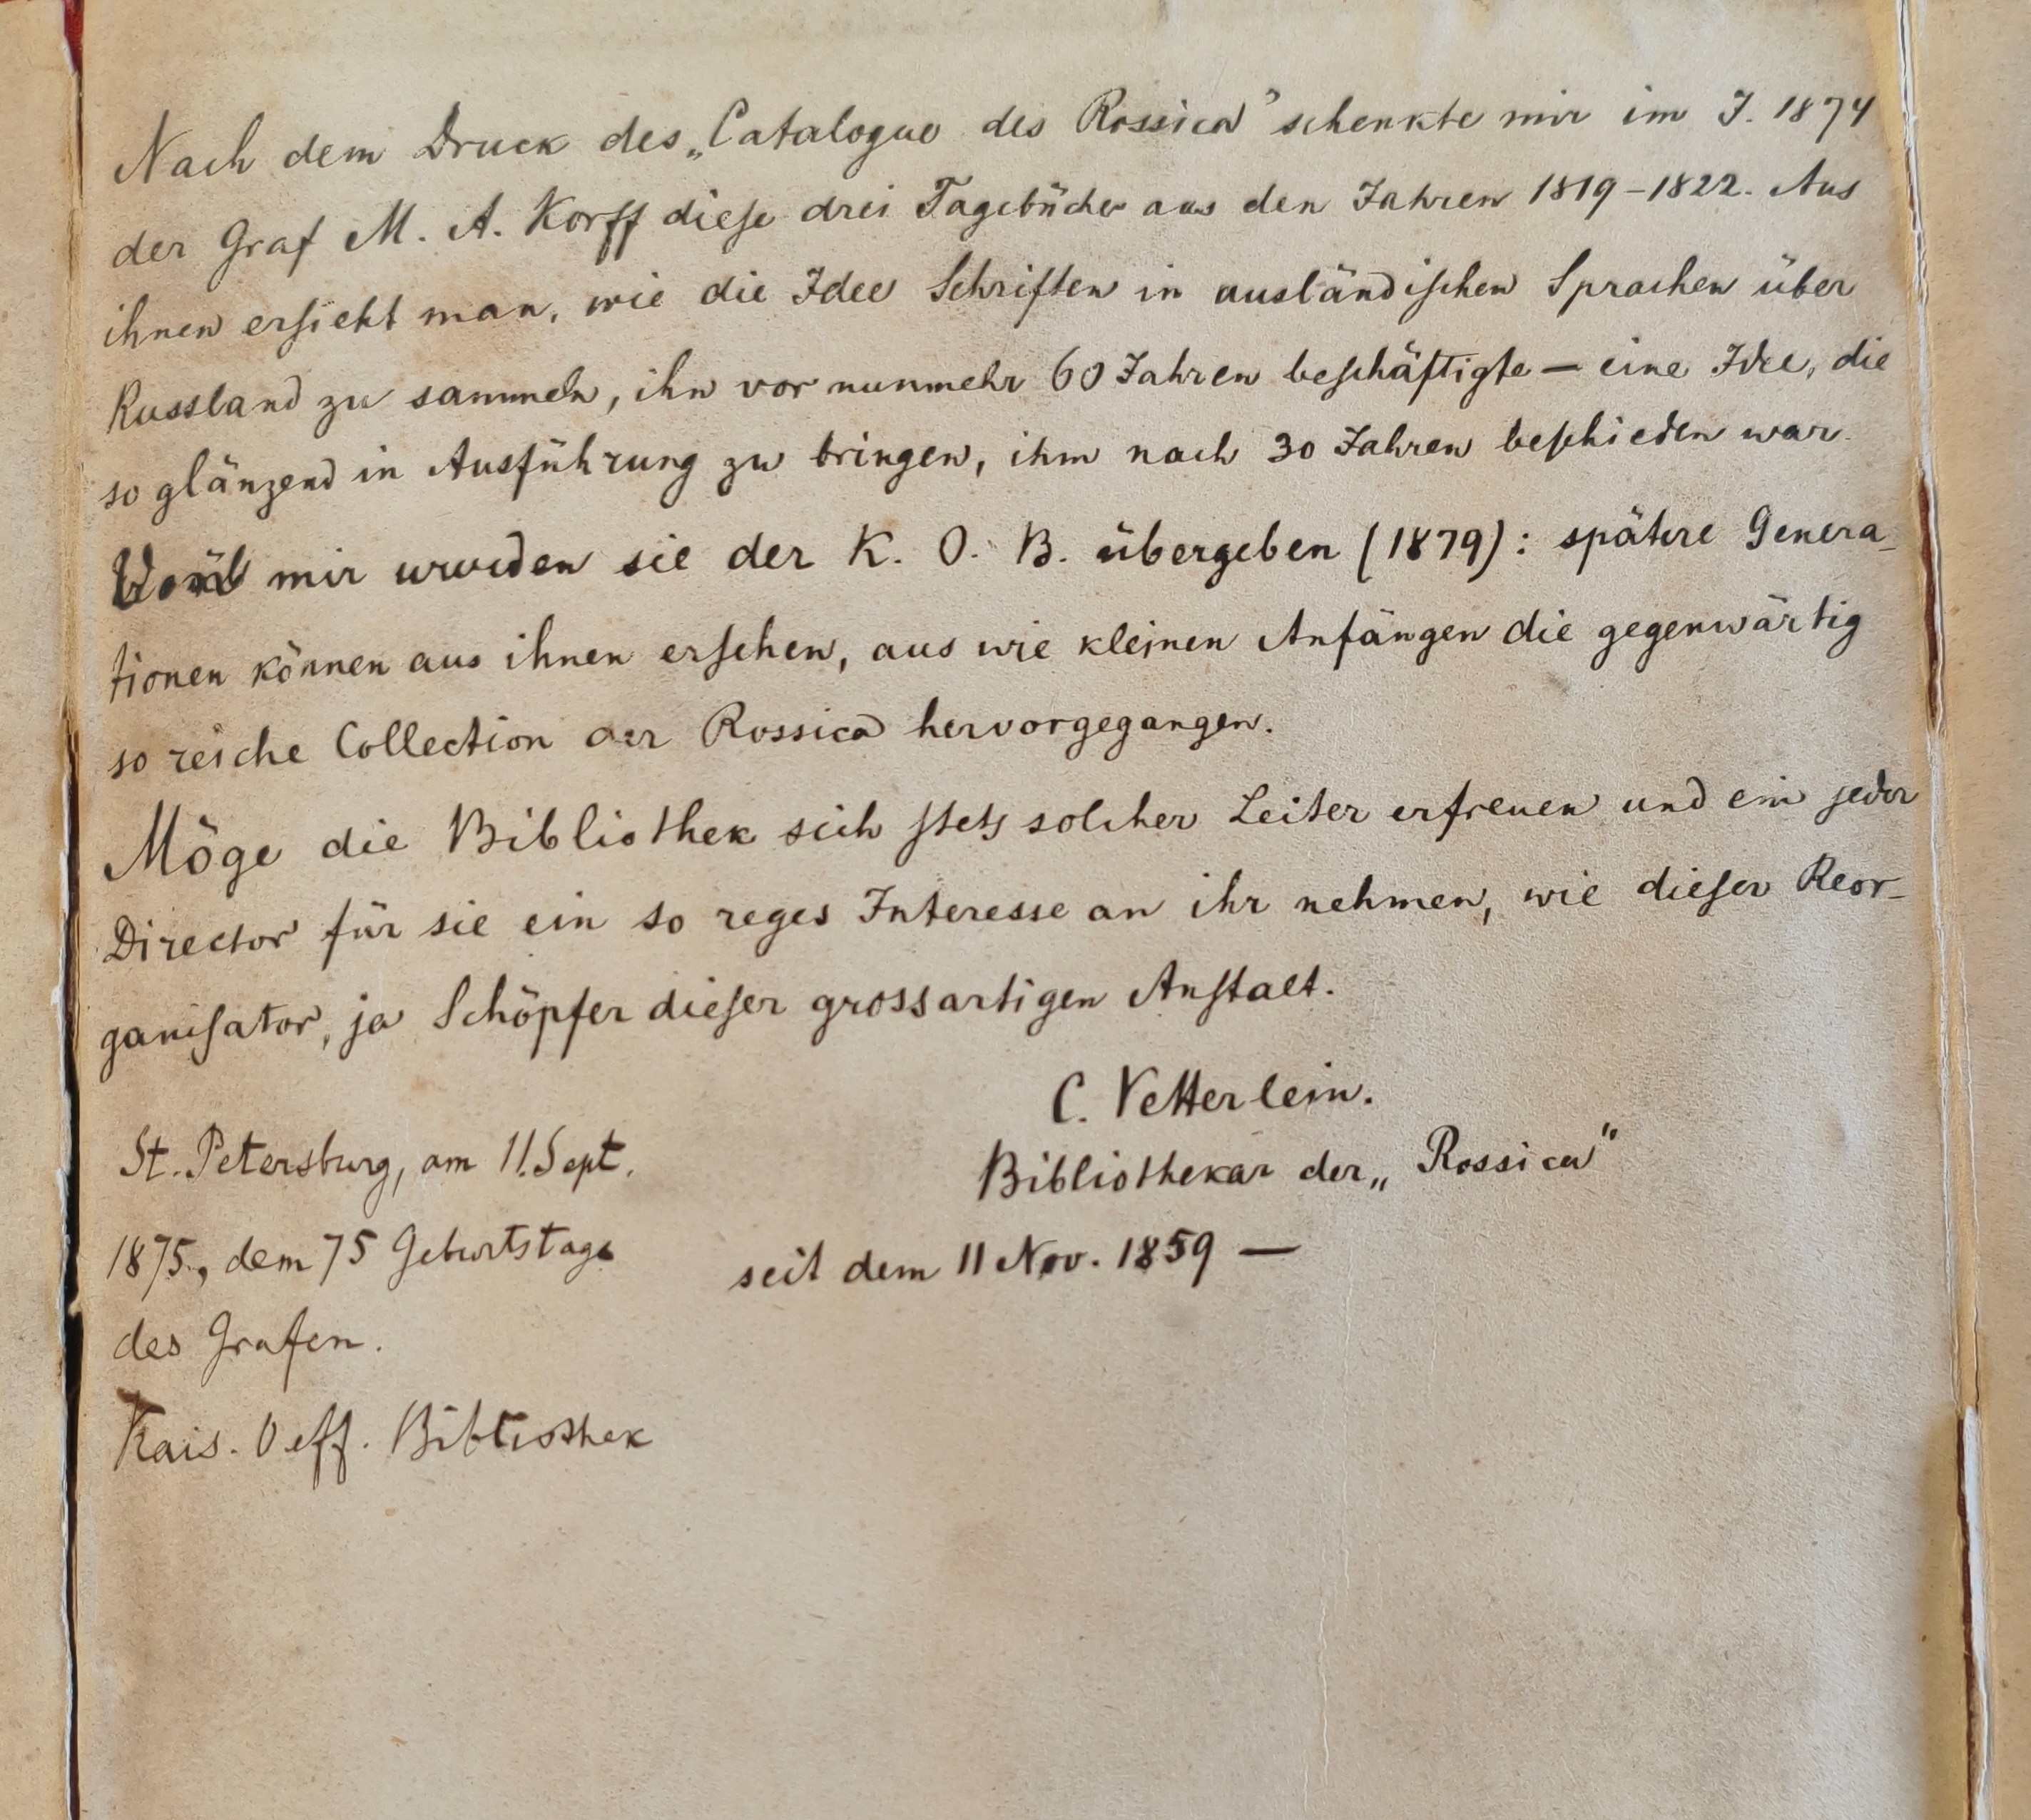 Nach dem Druck des „Catalogue des Rossica” schenkte mir im J. 1874
der Graf M. A. Korff dieſe drei Tagebücher aus den Jahren 1819–1822. Aus
ihnen erſieht man, wie die Idee Schriften in ausländiſchen Sprachen über
Russland zu sammeln, ihn vor nunmehr 60 Jahren beſchäftigte — eine Idee, die
so glänzend in Ausführung zu bringen, ihm nach 30 Jahren beſchieden war.
mir wurden sie der K. O. B. übergeben (1879): spätere Genera-
tionen können aus ihnen erſehen, aus wie kleinen Anfängen die gegenwärtig
so reiche Collection der Rossica hervorgegangen.
Möge die Bibliothek sich ſtets solcher Leiter erfreuen und ein jeder
Director für sie ein so reges Interesse an ihr nehmen, wie dieſer Reor-
ganiſator, ja Schöpfer dieſer grossartigen Anſtalt.
C. Vetterlein.
Bibliothekar der „Rossica”
seit dem 11 Nov. 1859 —
St. Petersburg, am 11. Sept.
1875., dem 75 Geburtstage
des Grafen.
Kais. Oeff. Bibliothek